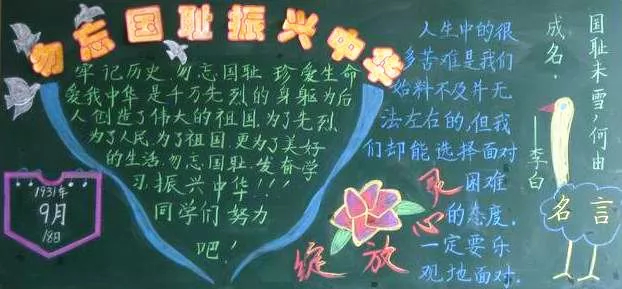 勿忘国耻振兴中华
牢记历史,勿忘国耻,珍爱生命
爱我中华,是千万先烈的身躯为后
人创造了伟大的祖国,为了先烈
为了人民,为了祖国,更为了美好
的生活,勿忘国耻,发奋学
习,振兴中华!!!
同学们努力
吧!
1931年
9月
18日
绽放
灵心
人生中的很
多苦难是我们
始料不及并无
法左右的,但我
们却能选择面对
困难
的态度,
一定要乐
观地面对.
国耻未雪,何由
成名,
——李白
名言